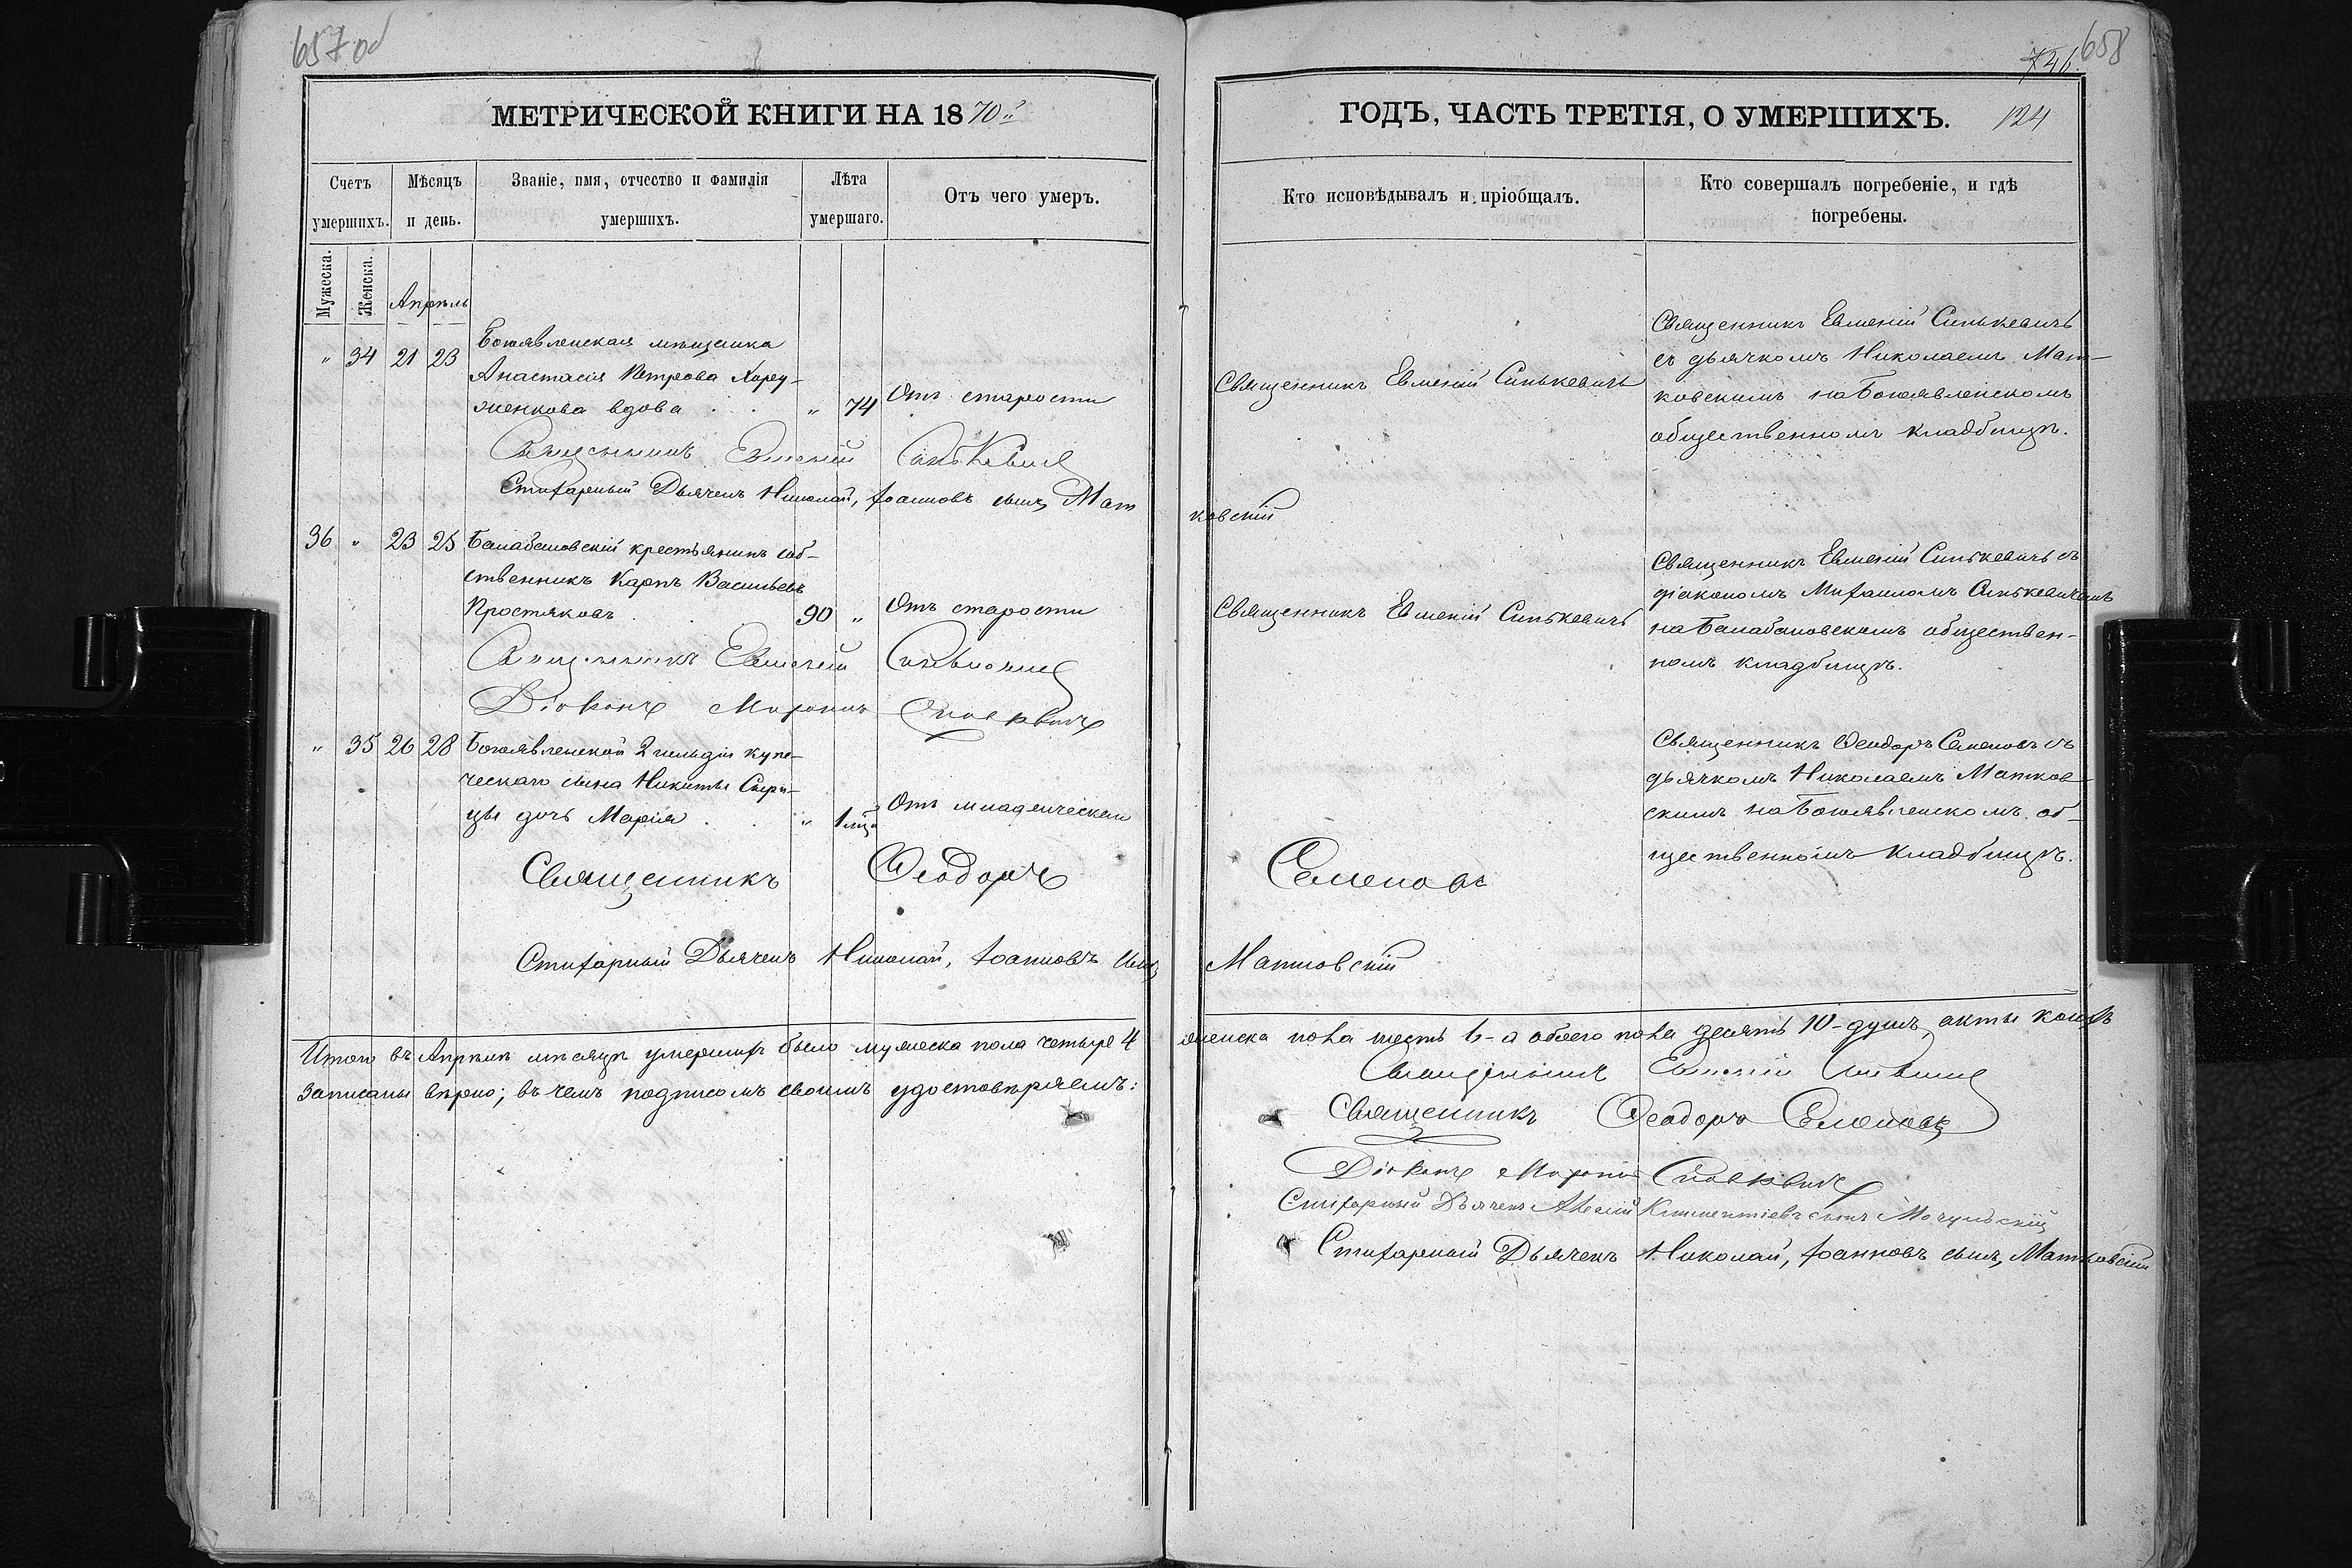 657 об
746. 658
МЕТРИЧЕСКОЙ КНИГИ НА 1870й
ГОДЪ, ЧАСТЬ ТРЕТІЯ, О УМЕРШИХЪ. 124
Счетъ умершихъ.
Мѣсяцъ и день.
Званіе, имя, отчество и фамилія умершихъ.
Лѣта умершаго.
Отъ чего умеръ.
Кто исповѣдывалъ и пріобщалъ.
Кто совершалъ погребеніе, и гдѣ погребены.
Мужеска.
Женска.
Апрѣль
" 34 21 23 Богоявленская мѣщанка
Анастасія Петрова Хору-
женкова вдова . . " 74 Отъ старости
Священникъ Евменій Синькевичъ
Священникъ Евменій Синькевичъ
съ дьячкомъ Николаемъ Мат-
ковскимъ на Богоявленскомъ
общественномъ кладбищѣ.
Священникъ Евменій Синькевичъ
Стихарный Дьячекъ Николай, Іоанновъ сынъ, Мат
ковскій
36 " 23 25 Балабановскій крестьянинъ соб-
ственникъ Карпъ Васильевъ
Простяковъ . . 90 " Отъ старости
Священникъ Евменій Синькевичъ
Священникъ Евменій Синькевичъ съ
діакономъ Михаиломъ Синькевичемъ
на Балабановскомъ обществен-
номъ кладбищѣ.
Священникъ Евменій Синькевичъ
Діаконъ Михаилъ Синькевичъ
" 35 26 28 Богоявленской 2 гильдіи купе-
ческаго сына Никиты Сыри-
цы дочь Марія . . " 1 мца Отъ младенческой
Священникъ Ѳеодоръ Семеновъ съ
дьячкомъ Николаемъ Матков-
скимъ на Богоявленскомъ об-
щественномъ кладбищѣ.
Священникъ Ѳеодоръ Семеновъ
Стихарный Дьячекъ Николай, Іоанновъ сынъ, Матковскій
Итого въ Апрѣлѣ мѣсяцѣ умершихъ было мужеска пола четыре 4
женска пола шесть 6-а обоего пола десять 10-душъ, акты коихъ
записаны вѣрно; въ чемъ подписомъ своимъ удостовѣряемъ:
Священникъ Евменій Синькевичъ
Священникъ Ѳеодоръ Семеновъ
Діаконъ Михаилъ Синькевичъ
Стихарный Дьячекъ Климентіевъ сынъ Мочульскій
Стихарный Дьячекъ Николай, Іоанновъ сынъ, Матковскій